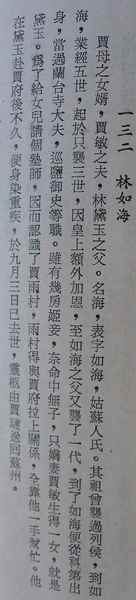 一三二　林如海
賈母之女婿，賈敏之夫，林黛玉之父。名海，表字如海，姑蘇人氏。其祖曾襲過列侯，到如
海，業經五世，起於只襲三世，因皇上額外加恩，至如海之父又襲了一代，到了如海便從科第出
身，當過蘭台寺大夫，巡鹽御史等職。雖有幾房姬妾，奈命中無子，只嫡妻賈敏生得一女，就是
黛玉。爲了給女兒請個塾師，因而認識了賈雨村，雨村得與賈府拉上關係，全靠他一手幫忙。他
在黛玉赴賈府後不久，便身染重疾，於九月三日巳去世，靈柩由賈璉送回蘇州。